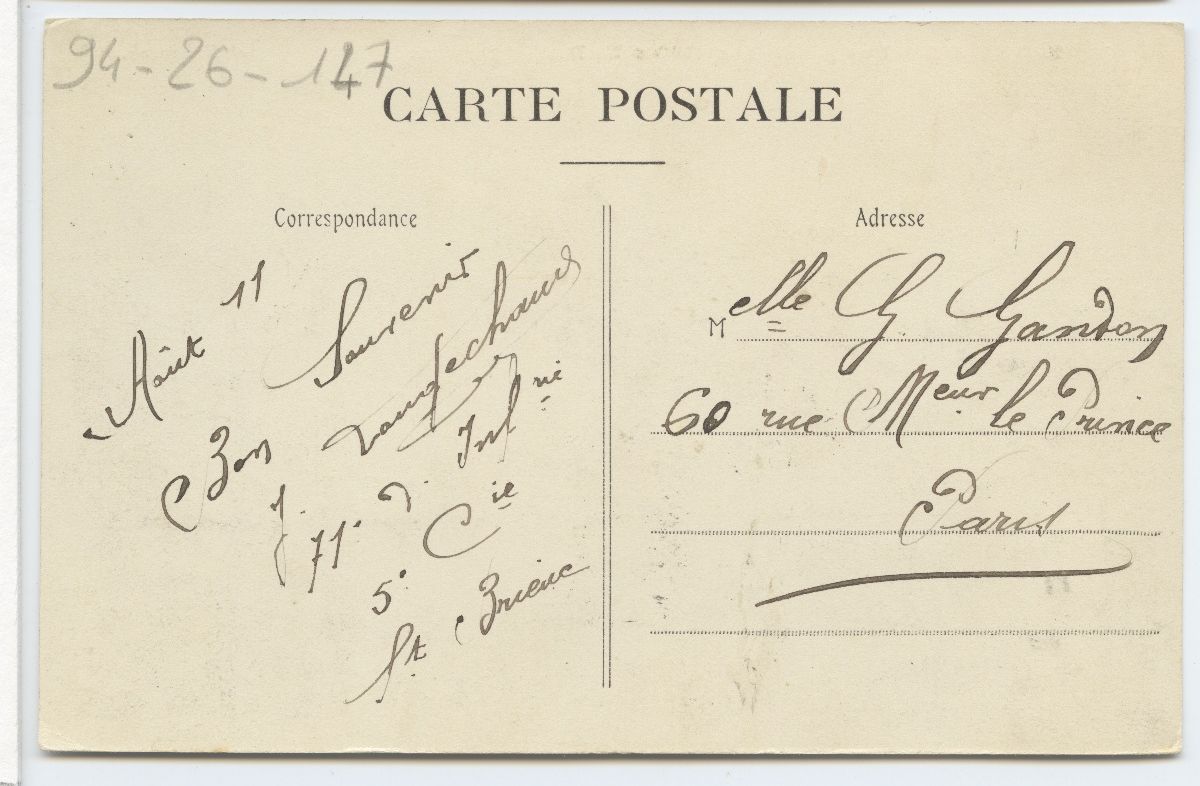 94-26-147
CARTE POSTALE
Correspondance
Août 11
Bon Souvenir
J.
71e d' Infrie
5e Cie
St Brieuc
Adresse
Melle G. Gandon
60 rue Meur le Prince
Paris